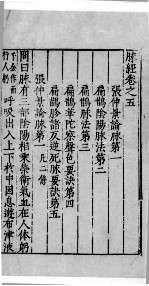 脉經卷之五
張仲景論脉第一
扁鵲陰陽脉法第二
扁鵲脉法第三
扁鵲華陀察聲色要訣第四
扁鵲診諸反逆死脉要訣第五
張仲景論脉第一
問曰脉有三部陰陽相乘榮衛氣血在人體躬
呼吸出入上下於中因息遊布津液